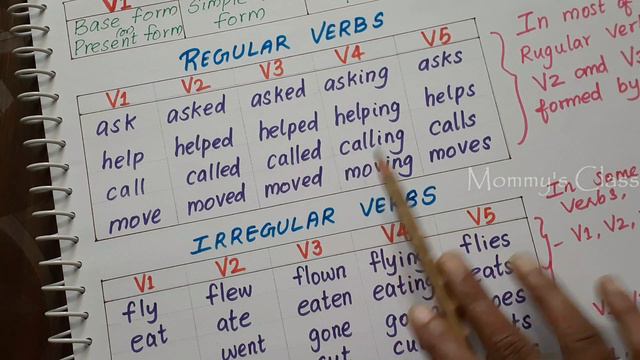 V1
Base form
(or)
Present form
Simple
form
REGULAR VERBS
V1 V2 V3 V4 V5
ask asked asked asking asks
help helped helped helping helps
call called called calling calls
move moved moved moving moves
In most of
Rugular ver
V2 and V3
formed by
Mommy's Class
IRREGULAR VERBS
V1 V2 V3 V4 V5
fly flew flown flying flies
eat ate eaten eating eats
went gone go oes
In some
verbs,
- V1, V2,